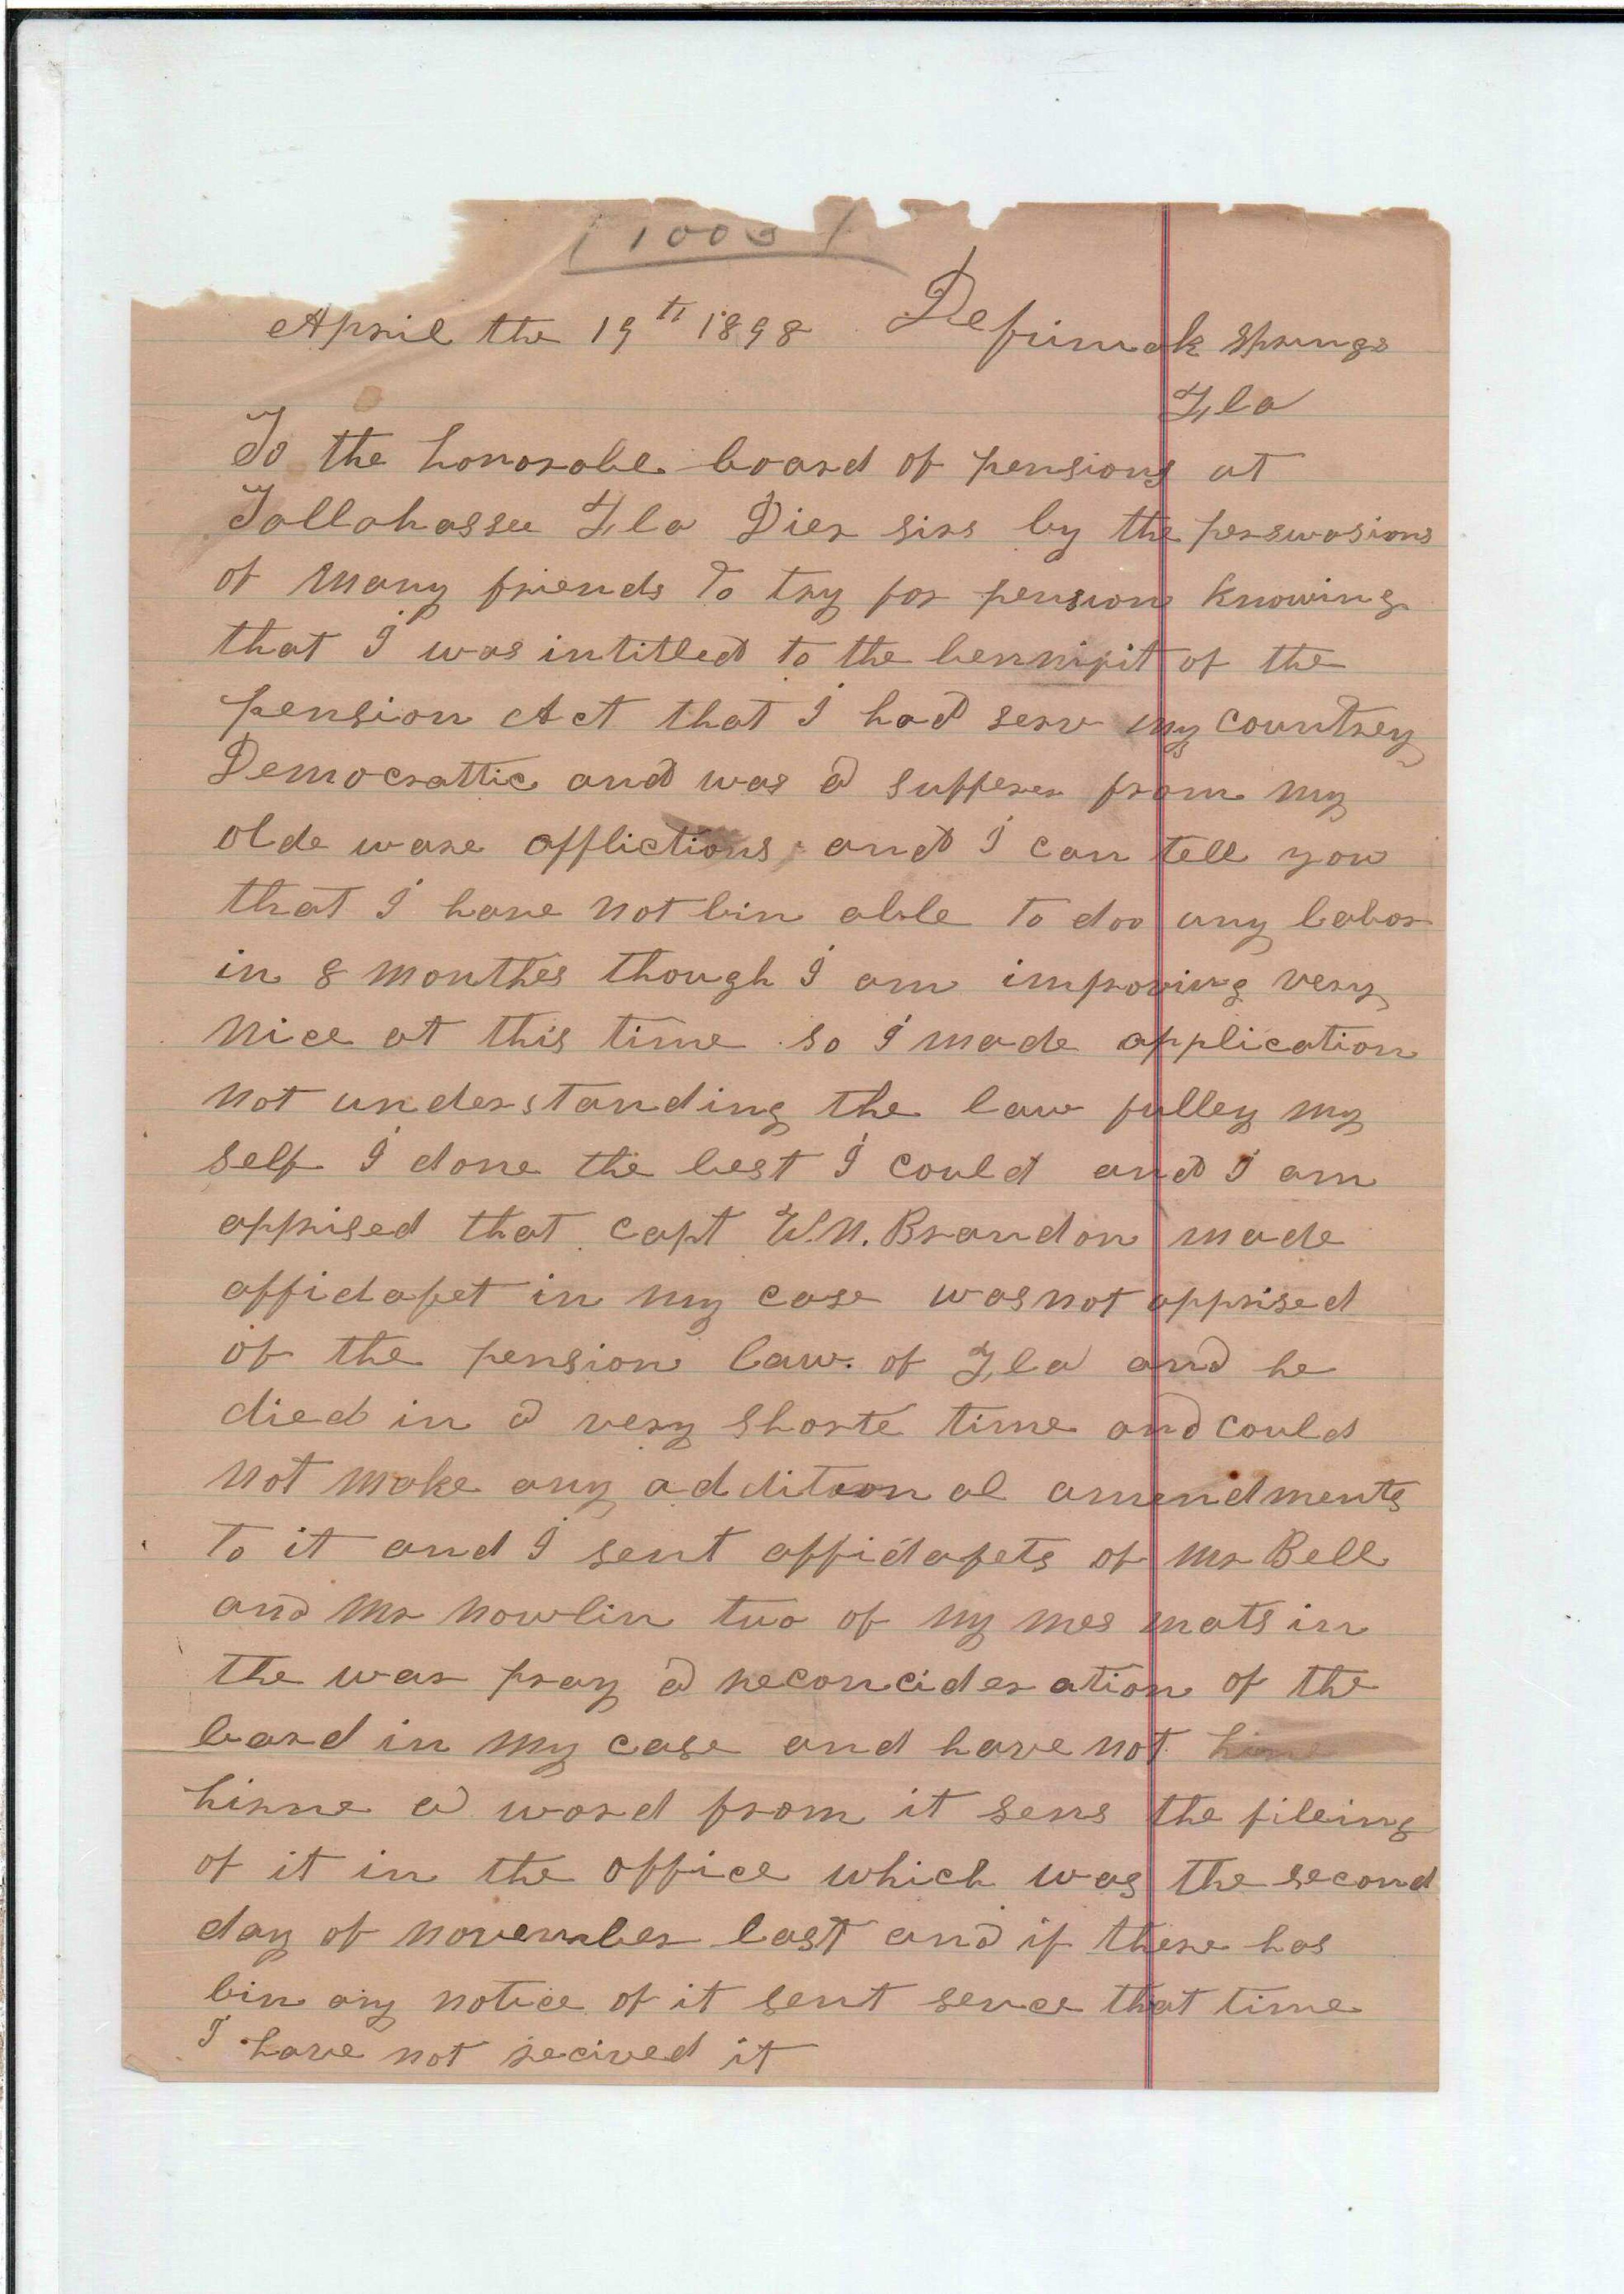 1003
April the 19th 1898 Defuniak Springs
Fla
To the honorable board of pensions at
Tallahassee Fla Dier sirs by the perswasions
of many friends to try for pension knowing
that I was intitled to the bennifit of the
pension Act that I had serv my countrey
Democrattic and was a sufferer from my
olde ware afflictions and I can tell you
that I have not bin able to doo any labor
in 8 monthes though I am improving very
nice at this time so I made application
not understanding the law fulley my
self I done the best I could and I am
apprised that capt W.N. Brandon made
affidafet in my case was not apprised
of the pension law. of Fla and he
died in a very shorte time and could
not make any additional amendments
to it and I sent affidafets of Mr Bell
and Mr Nowlin two of my mes mats in
the war pray a reconcideration of the
bard in my case and have not
hirne a word from it sens the fileing
of it in the office which was the second
day of november last and if there has
bin any notice of it sent sence that time
I have not recived it